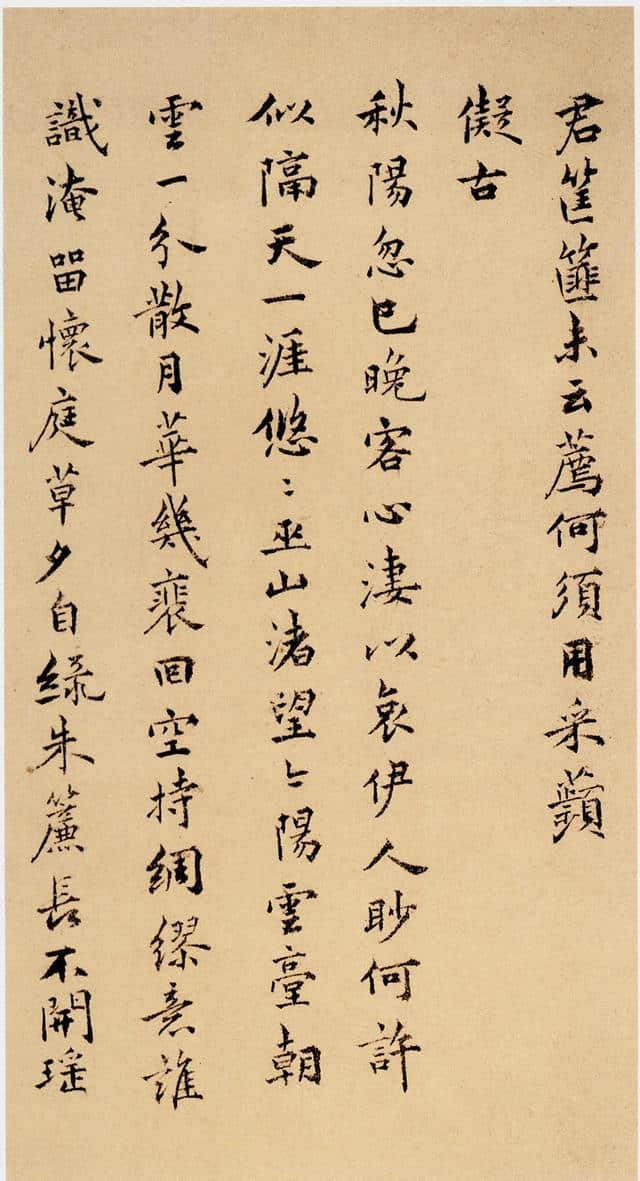 君筐篚未云薦何須用采蘋
儗古
秋陽忽已晚客心淒以哀伊人眇何許
似隔天一涯悠〻巫山渚望〻陽雲臺朝
雲一分散月華幾裴回空持綢繆意誰
識淹留懷庭草夕自綠朱簾長不開瑤